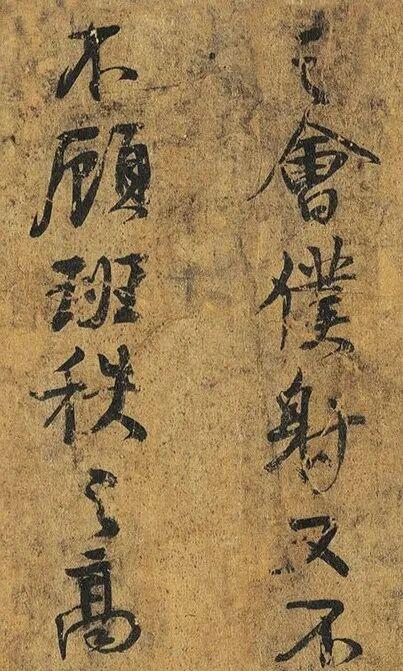 之會僕射又不
不顧班秩之高